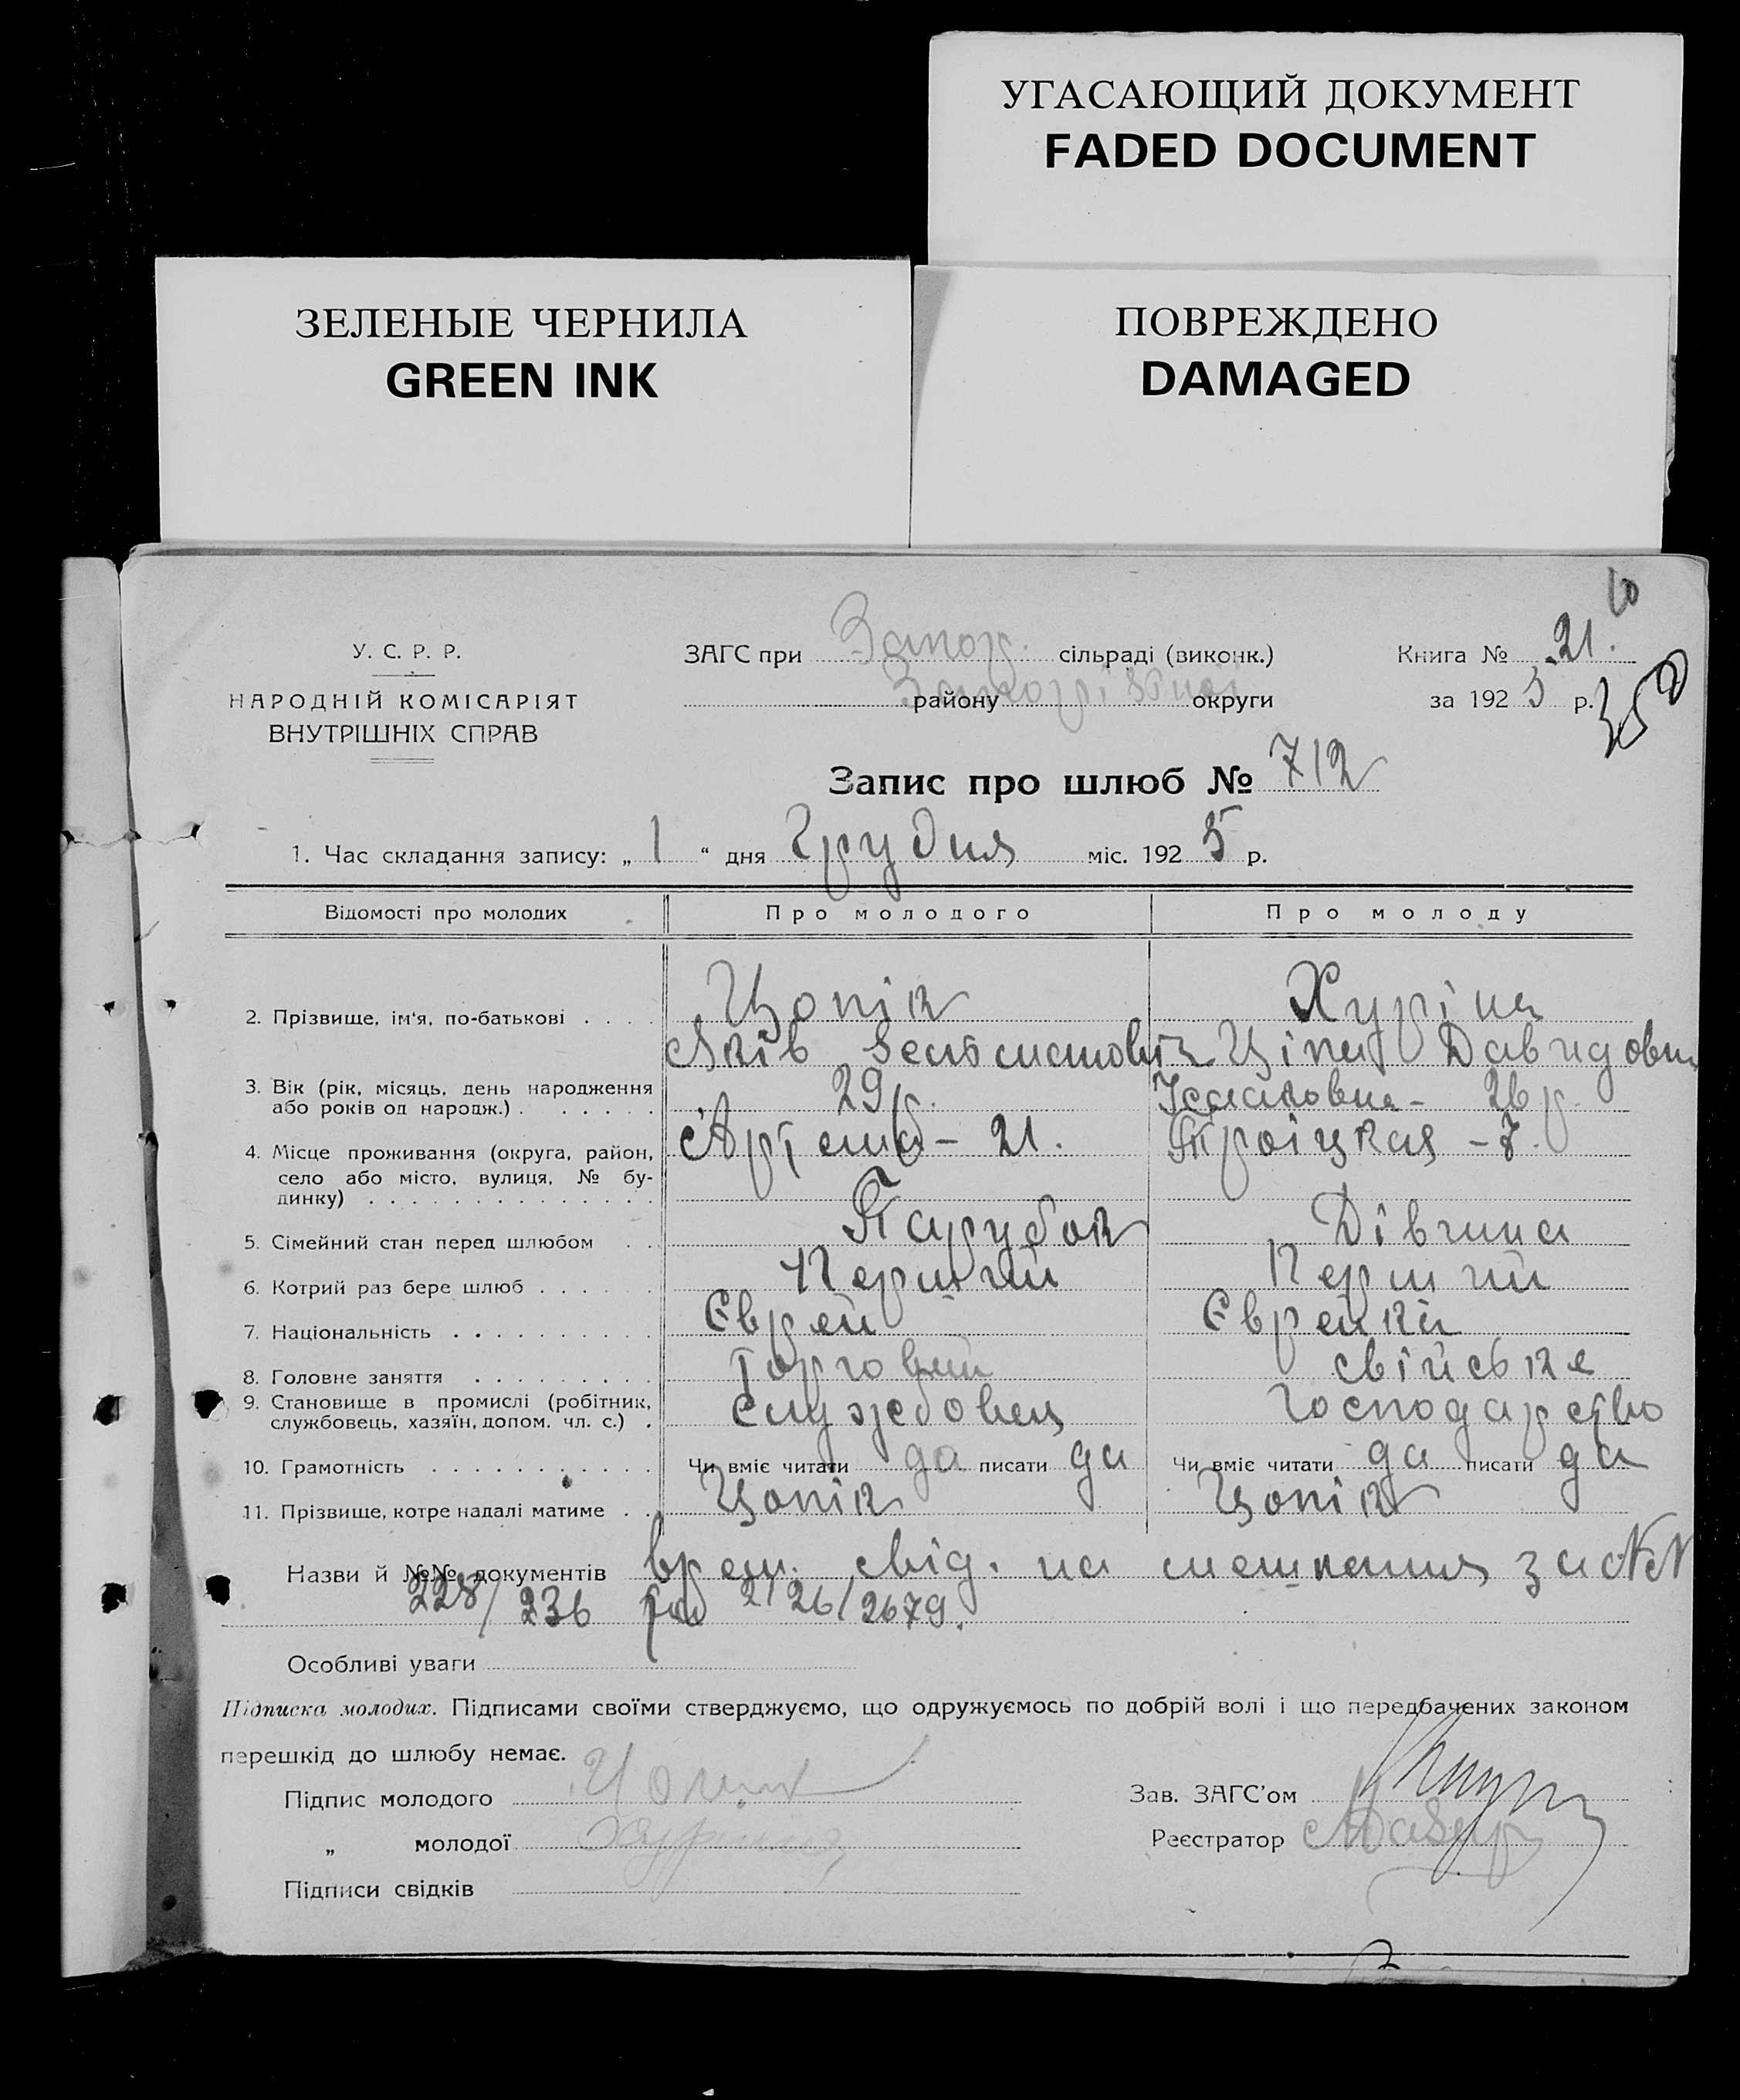 УГАСАЮЩИЙ ДОКУМЕНТ
FADED DOCUMENT
ЗЕЛЕНЫЕ ЧЕРНИЛА
GREEN INK
ПОВРЕЖДЕНО
DAMAGED
10
У. С. Р. Р.
НАРОДНІЙ КОМІСАРІЯТ
ВНУТРІШНІХ СПРАВ
ЗАГС при Запор. сільраді (виконк.)
району округи
Книга № 21.
за 192 5 р.
350
Запис про шлюб № 712
1. Час складання запису: „ 1 “ дня Грудня міс. 192 5 р.
Відомості про молодих Про молодого Про молоду
2. Прізвище, ім'я, по-батькові Цопік Хуріна
Яків Ціпа Давидовна
3. Вік (рік, місяць, день народження або років од народж.) 29 р. 26 р.
4. Місце проживання (округа, район, село або місто, вулиця, № будинку) Артема - 21. Троіцкая - 7.
5. Сімейний стан перед шлюбом Парубок Дівчина
6. Котрий раз бере шлюб Перший Перший
7. Національність Єврей Єврейка
8. Головне заняття Торговий свійське
9. Становище в промислі (робітник, службовець, хазяїн, допом. чл. с.) Службовец господарство
10. Грамотність Чи вміє читати да писати да Чи вміє читати да писати да
11. Прізвище, котре надалі матиме Цопік Цопік
Назви й №№ документів врем. свід. на мешкання за №№
228/236 2126/2679.
Особливі уваги
Підписка молодих. Підписами своїми стверджуємо, що одружуємось по добрій волі і що передбачених законом
перешкід до шлюбу немає.
Підпис молодого Цопик
„ молодої Хурина
Підписи свідків
Зав. ЗАГС'ом
Реєстратор